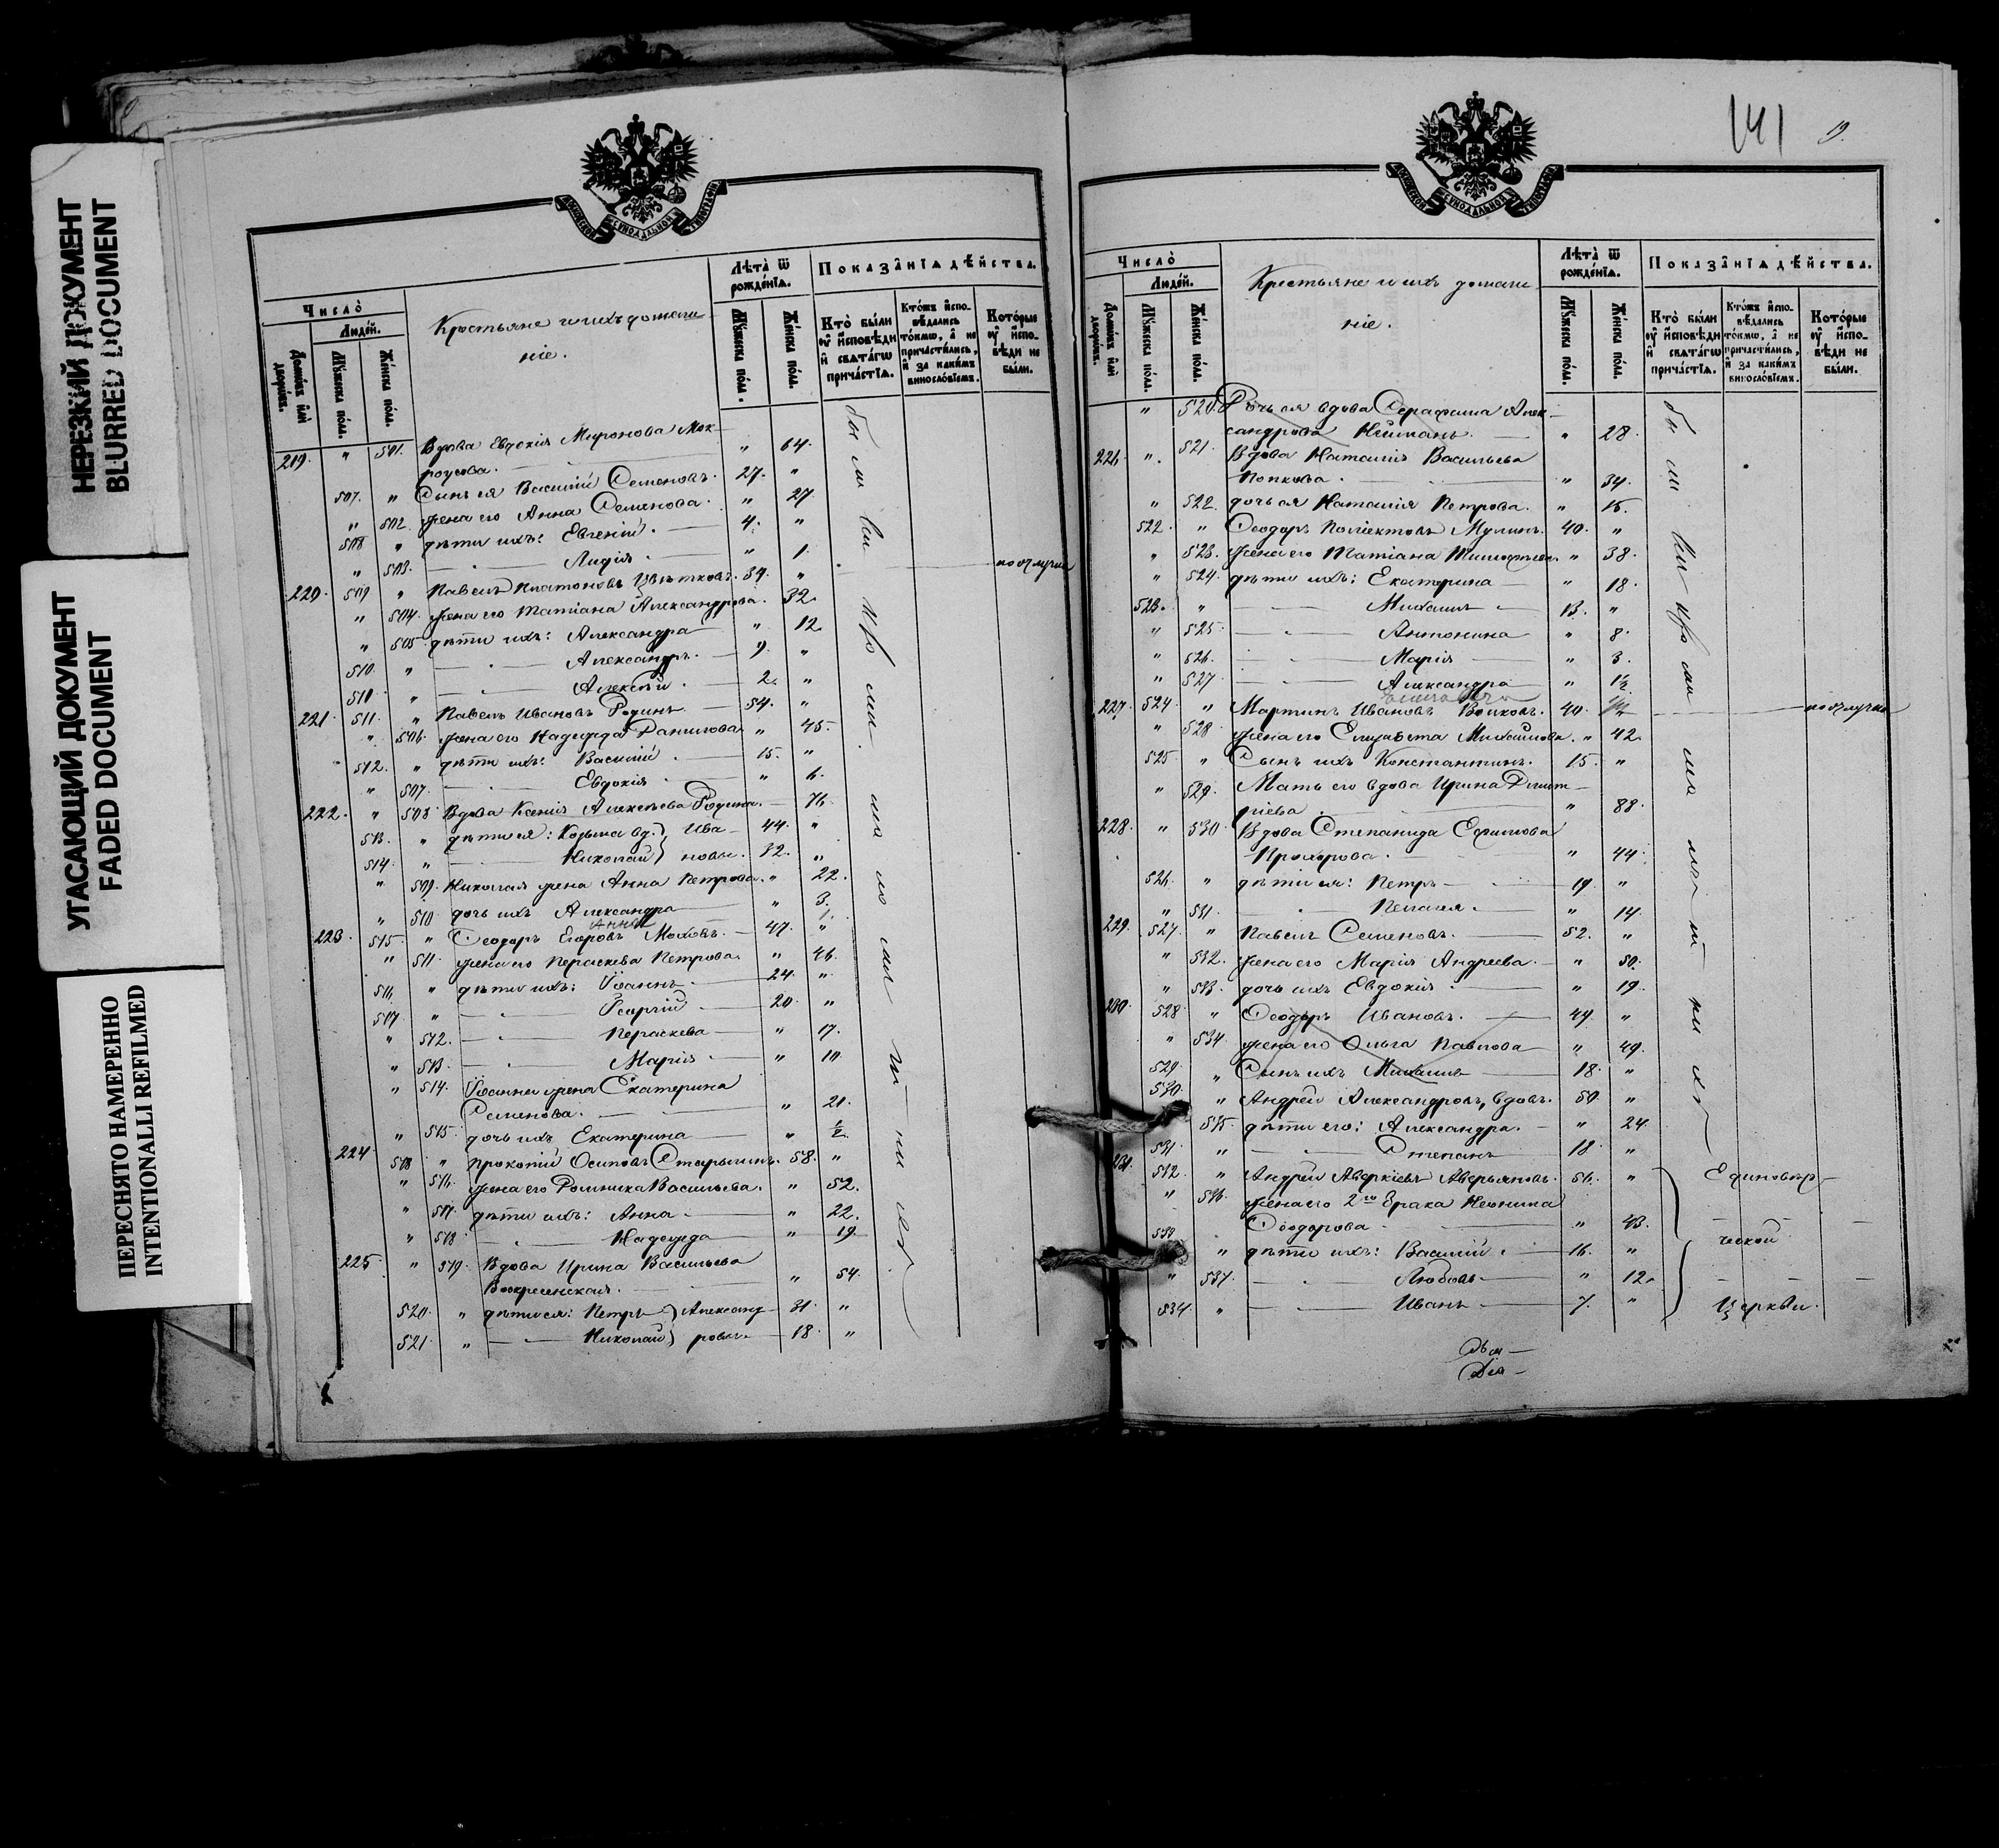 НЕРЕЗКИЙ ДОКУМЕНТ
BLURRED DOCUMENT
УГАСАЮЩИЙ ДОКУМЕНТ
FADED DOCUMENT
ПЕРЕСНЯТО НАМЕРЕННО
INTENTIONALLI REFILMED
МОСКОВСКОЙ СѴНОДАЛЬНОЙ ТИПОГРАФІИ
Число̀
Людей.
Домѡвъ или дворѡвъ.
Мꙋжеска пола.
Женска пола.
Крестьяне и ихъ домаш
ніе.
Лѣта̀ ѿ рожденїѧ.
Мꙋжеска пола.
Женска пола.
Показанїѧ дѣйства.
Кто̀ были ѹ исповѣди и свѧтагѡ причастїѧ.
Ктожъ исповѣдались токмѡ, а не причастились, и за какимъ винословїемъ.
Которые ѹ исповѣди не были.
219. " 501. Вдова Евдокія Миронова Мок-
роусова. " 64.
507. " Сынъ ея Василій Семеновъ. 27. "
" 502. жена его Анна Семенова. " 27.
508 " дѣти ихъ: Евгеній. 4. "
" 503. Лидія. " 1.
220. 509 " Павелъ Платоновъ Цвѣтковъ. 34. " по отлучкѣ
" 504. жена его Татіана Александрова. 32.
" 505 дѣти ихъ: Александра " 12.
510. " Александръ. 9. "
510. " Алексѣй. 2. "
221. 511. " Павелъ Ивановъ Родинъ. 54. "
" 506. жена его Надежда Данилова. " 45.
512. " дѣти ихъ: Василій. 15. "
" 507. Евдокія. " 6.
222. " 508 Вдова Ксенія Алексѣева Родина. 76.
513. " дѣти ея: Козьма вд. } Ива- 44. "
514. " Николай } новы. 32. "
" 509. Николая жена Анна Петрова. " 22.
" 510. дочь ихъ Александра " 3.
Анна 1.
223. 515. " Ѳеодоръ Егоровъ Моховъ. 47. "
" 511. жена его Параскева Петрова. " 46.
516. " дѣти ихъ: Іоаннъ. 24. "
517. " Георгій 20. "
" 512. Параскева " 17.
" 513. Марія " 10.
" 514. Іоанна жена Екатерина
Семенова. " 21.
" 515. дочь ихъ Екатерина " ½.
224. 518 " Прокопій Осиповъ Старынинъ. 58. "
" 516. жена его Домника Васильева. " 52.
" 517. дѣти ихъ: Анна " 22.
" 518 Надежда " 19.
225. " 519. Вдова Ирина Васильева
Воскресенская. " 54.
520. " дѣти ея: Петръ } Александ- 31. "
521. " Николай } ровы. 18. "
были
141 19.
МОСКОВСКОЙ СѴНОДАЛЬНОЙ ТИПОГРАФІИ
Число̀
Людей.
Домѡвъ или дворѡвъ.
Мꙋжеска пола.
Женска пола.
Крестьяне и ихъ домаш
ніе.
Лѣта̀ ѿ рожденїѧ.
Мꙋжеска пола.
Женска пола.
Показанїѧ дѣйства.
Кто̀ были ѹ исповѣди и свѧтагѡ причастїѧ.
Ктожъ исповѣдались токмѡ, а не причастились, и за какимъ винословїемъ.
Которые ѹ исповѣди не были.
" 520. Дочь ея вдова Серафима Алек-
сандрова Нейманъ. " 28.
226. " 521. Вдова Наталія Васильева
Попкова. " 34.
" 522 дочь ея Наталія Петрова. " 16.
522. " Ѳеодоръ Поліектовъ Мулинъ. 40. "
" 523. жена его Татіана Тимоѳеева. " 38.
" 524. дѣти ихъ: Екатерина " 18.
523. " Михаилъ 13. "
" 525 Антонина " 8.
" 526. Марія " 3.
" 527 Александра " 1½
227. 524 " Мартинъ Ивановъ Волковъ. 40. " по отлучкѣ
" 528 жена его Елизавета Михайлова. " 42.
525 " Сынъ ихъ Константинъ. 15. "
" 529. Мать его вдова Ирина Димит-
ріева " 88.
228. " 530. Вдова Степанида Ефимова
Прохорова. " 44.
526. " дѣти ея: Петръ 19. "
" 531 Пелагея. " 14.
229. 527. " Павелъ Семеновъ. 52. "
" 532. жена его Марія Андреева. " 50.
" 533. дочь ихъ Евдокія " 19.
230. 528. " Ѳеодоръ Ивановъ. 49. "
" 534 жена его Ольга Павлова " 49.
529. " Сынъ ихъ Михаилъ 18. "
530. " Андрей Александровъ, вдовъ. 50. "
535 дѣти его: Александра. " 24.
531. " Степанъ 18. "
231. 532 " Андрей Аверкіевъ Аверьяновъ. 56. " Единовѣр-
" 536. жена его 2го брака Неонила
Ѳеодорова " 43. ческой
539 " дѣти ихъ: Василій. 16. "
" 537. Любовь " 12.
534. " Иванъ 7. " Церкви.
были